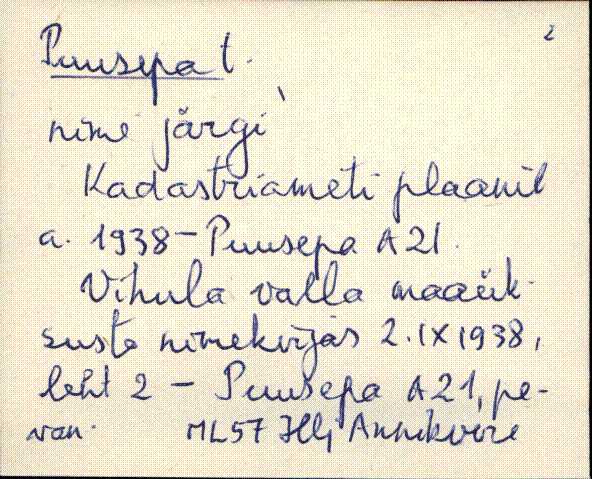 Puusepa t.
2
nime järgi
Kadastriameti plaanil
a. 1938 – Puusepa A21.
Vihula valla maaük-
suste nimekirjas 2.IX 1938,
leht 2 – Puusepa A21, pe-
ML57 Annikvere